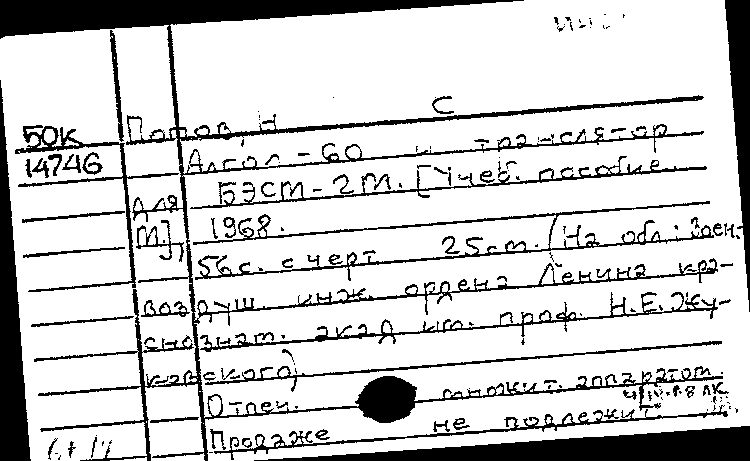 С
БОК Попов, Н
14746 Алгол-60 и транслятор
для БЭСМ-2М. [Учеб. пособие.
М.], 1968.
56 с. с черт 25 см. (На обл.: Воен.-
воздуш. инж. ордена Ленина кра-
снознам. акад им. проф. Н.Е. Жу-
ковского).
Отпеч. множит. аппаратом.
Продаже не подлежит.